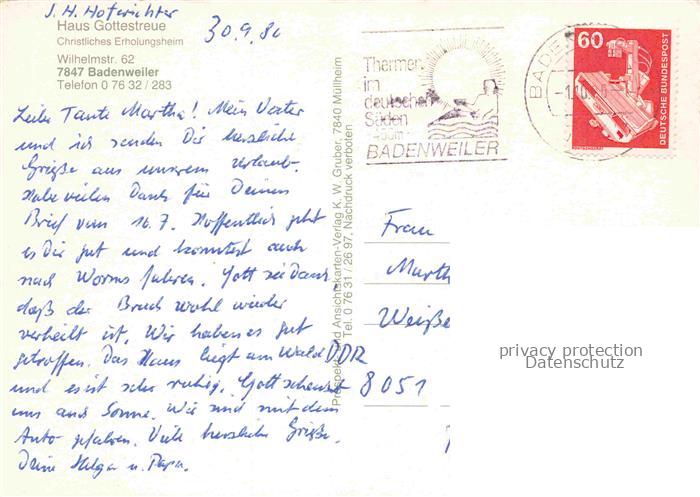 J. H. Hoferichter
Haus Gottestreue
Christliches Erholungsheim
Wilhelmstr. 62
7847 Badenweiler
Telefon 0 76 32 / 283
30.9.80
Liebe Tante Martha! Mein Vater
und ich senden Dir herzliche
Grüße aus unserem Urlaub.
Habe vielen Dank für Deinen
Brief vom 16.7. Hoffentlich geht
es Dir gut und konntest auch
nach Worms fahren. Gott sei Dank,
daß der Bruch wohl wieder
verheilt ist. Wir haben es gut
getroffen. Das Haus liegt am Wald
und es ist sehr ruhig. Gott schenkt
uns auch Sonne. Wir sind mit dem
Auto gefahren. Viele herzliche Grüße.
Deine Helga u. Papa.
Prospekt- und Ansichtskarten-Verlag K. W. Gruber, 7840 Müllheim
Tel. 0 76 31 / 26 97, Nachdruck verboten
Thermen
im
deutschen
Süden
450m
BADENWEILER
60
DEUTSCHE BUNDESPOST
Frau
Marth
Weiße
DDR
8051
privacy protection
Datenschutz